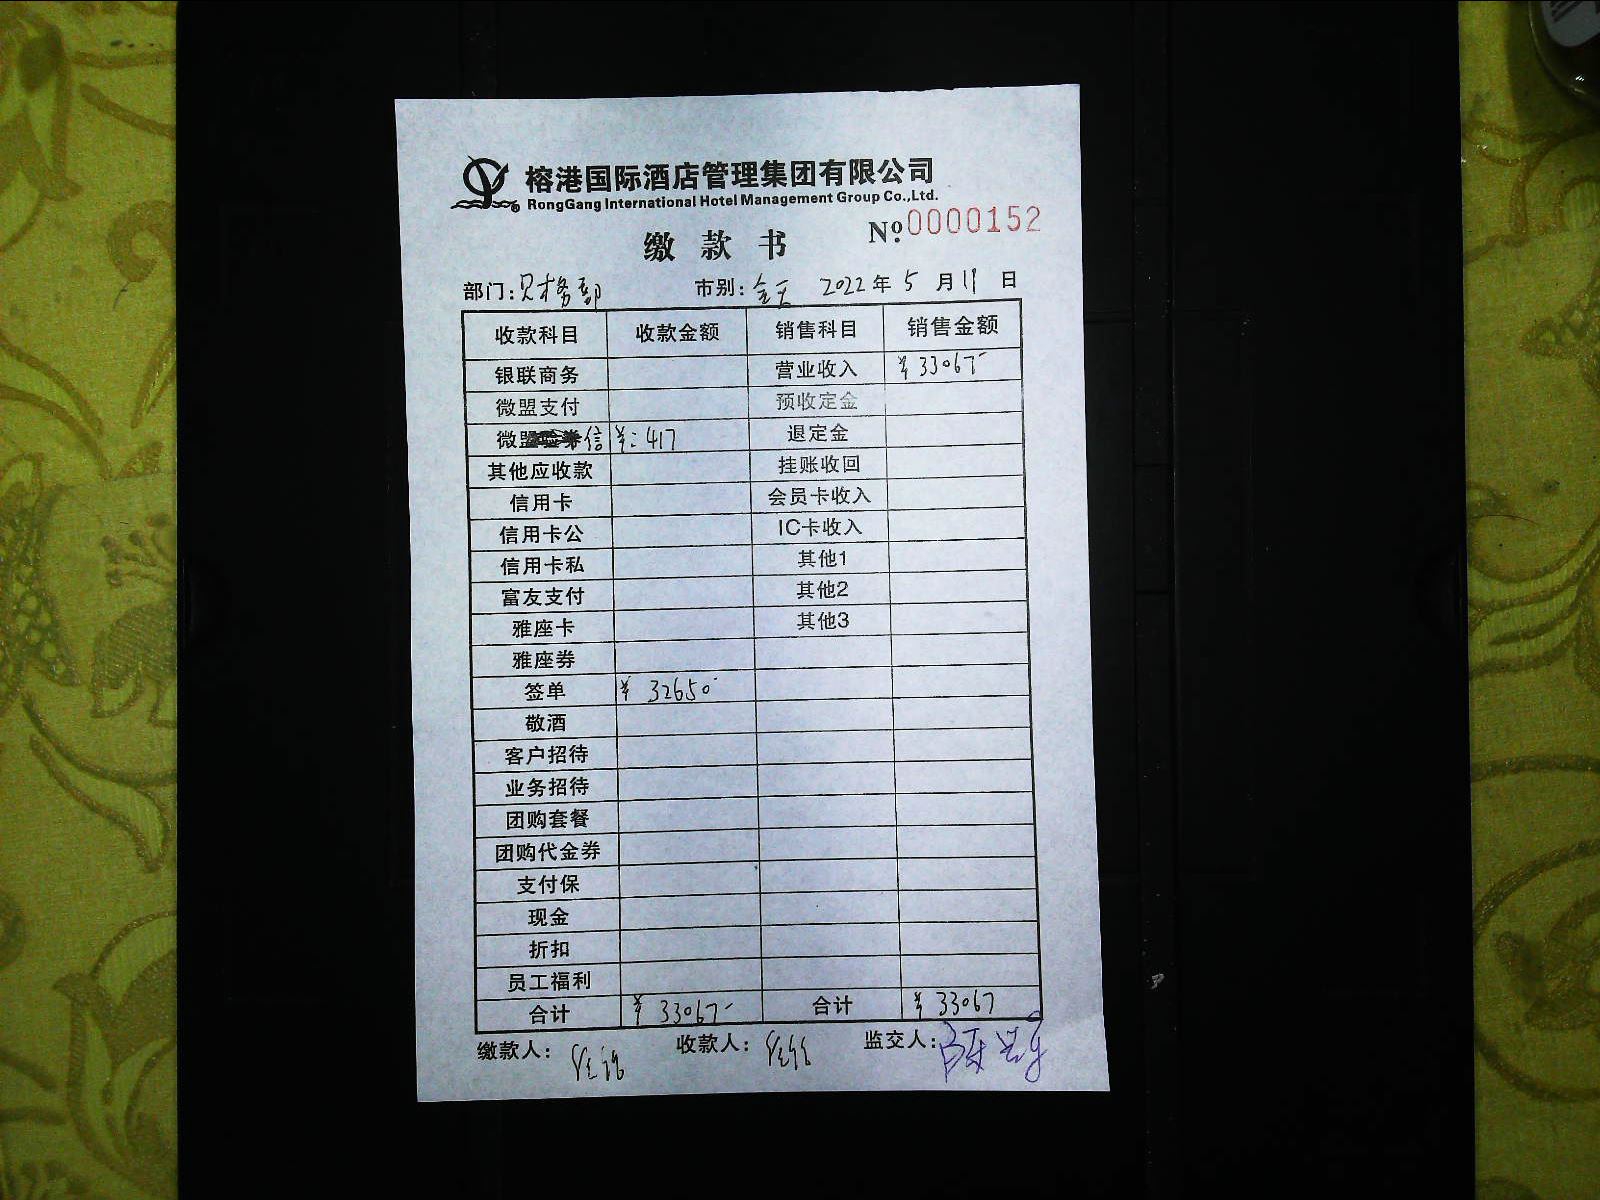 榕港国际酒店管理集团有限公司
RongGang International Hotel Management Group Co.,Ltd.
缴款书 №:0000152
部门:财务部 市别:全天 2022年5月11日
收款科目 收款金额 销售科目 销售金额
银联商务 营业收入 ¥33067-
微盟支付 预收定金
微信 ¥:417 退定金
其他应收款 挂账收回
信用卡 会员卡收入
信用卡公 IC卡收入
信用卡私 其他1
富友支付 其他2
雅座卡 其他3
雅座券
签单 ¥32650-
敬酒
客户招待
业务招待
团购套餐
团购代金券
支付保
现金
折扣
员工福利
合计 ¥33067- 合计 ¥33067
缴款人: 收款人: 监交人: